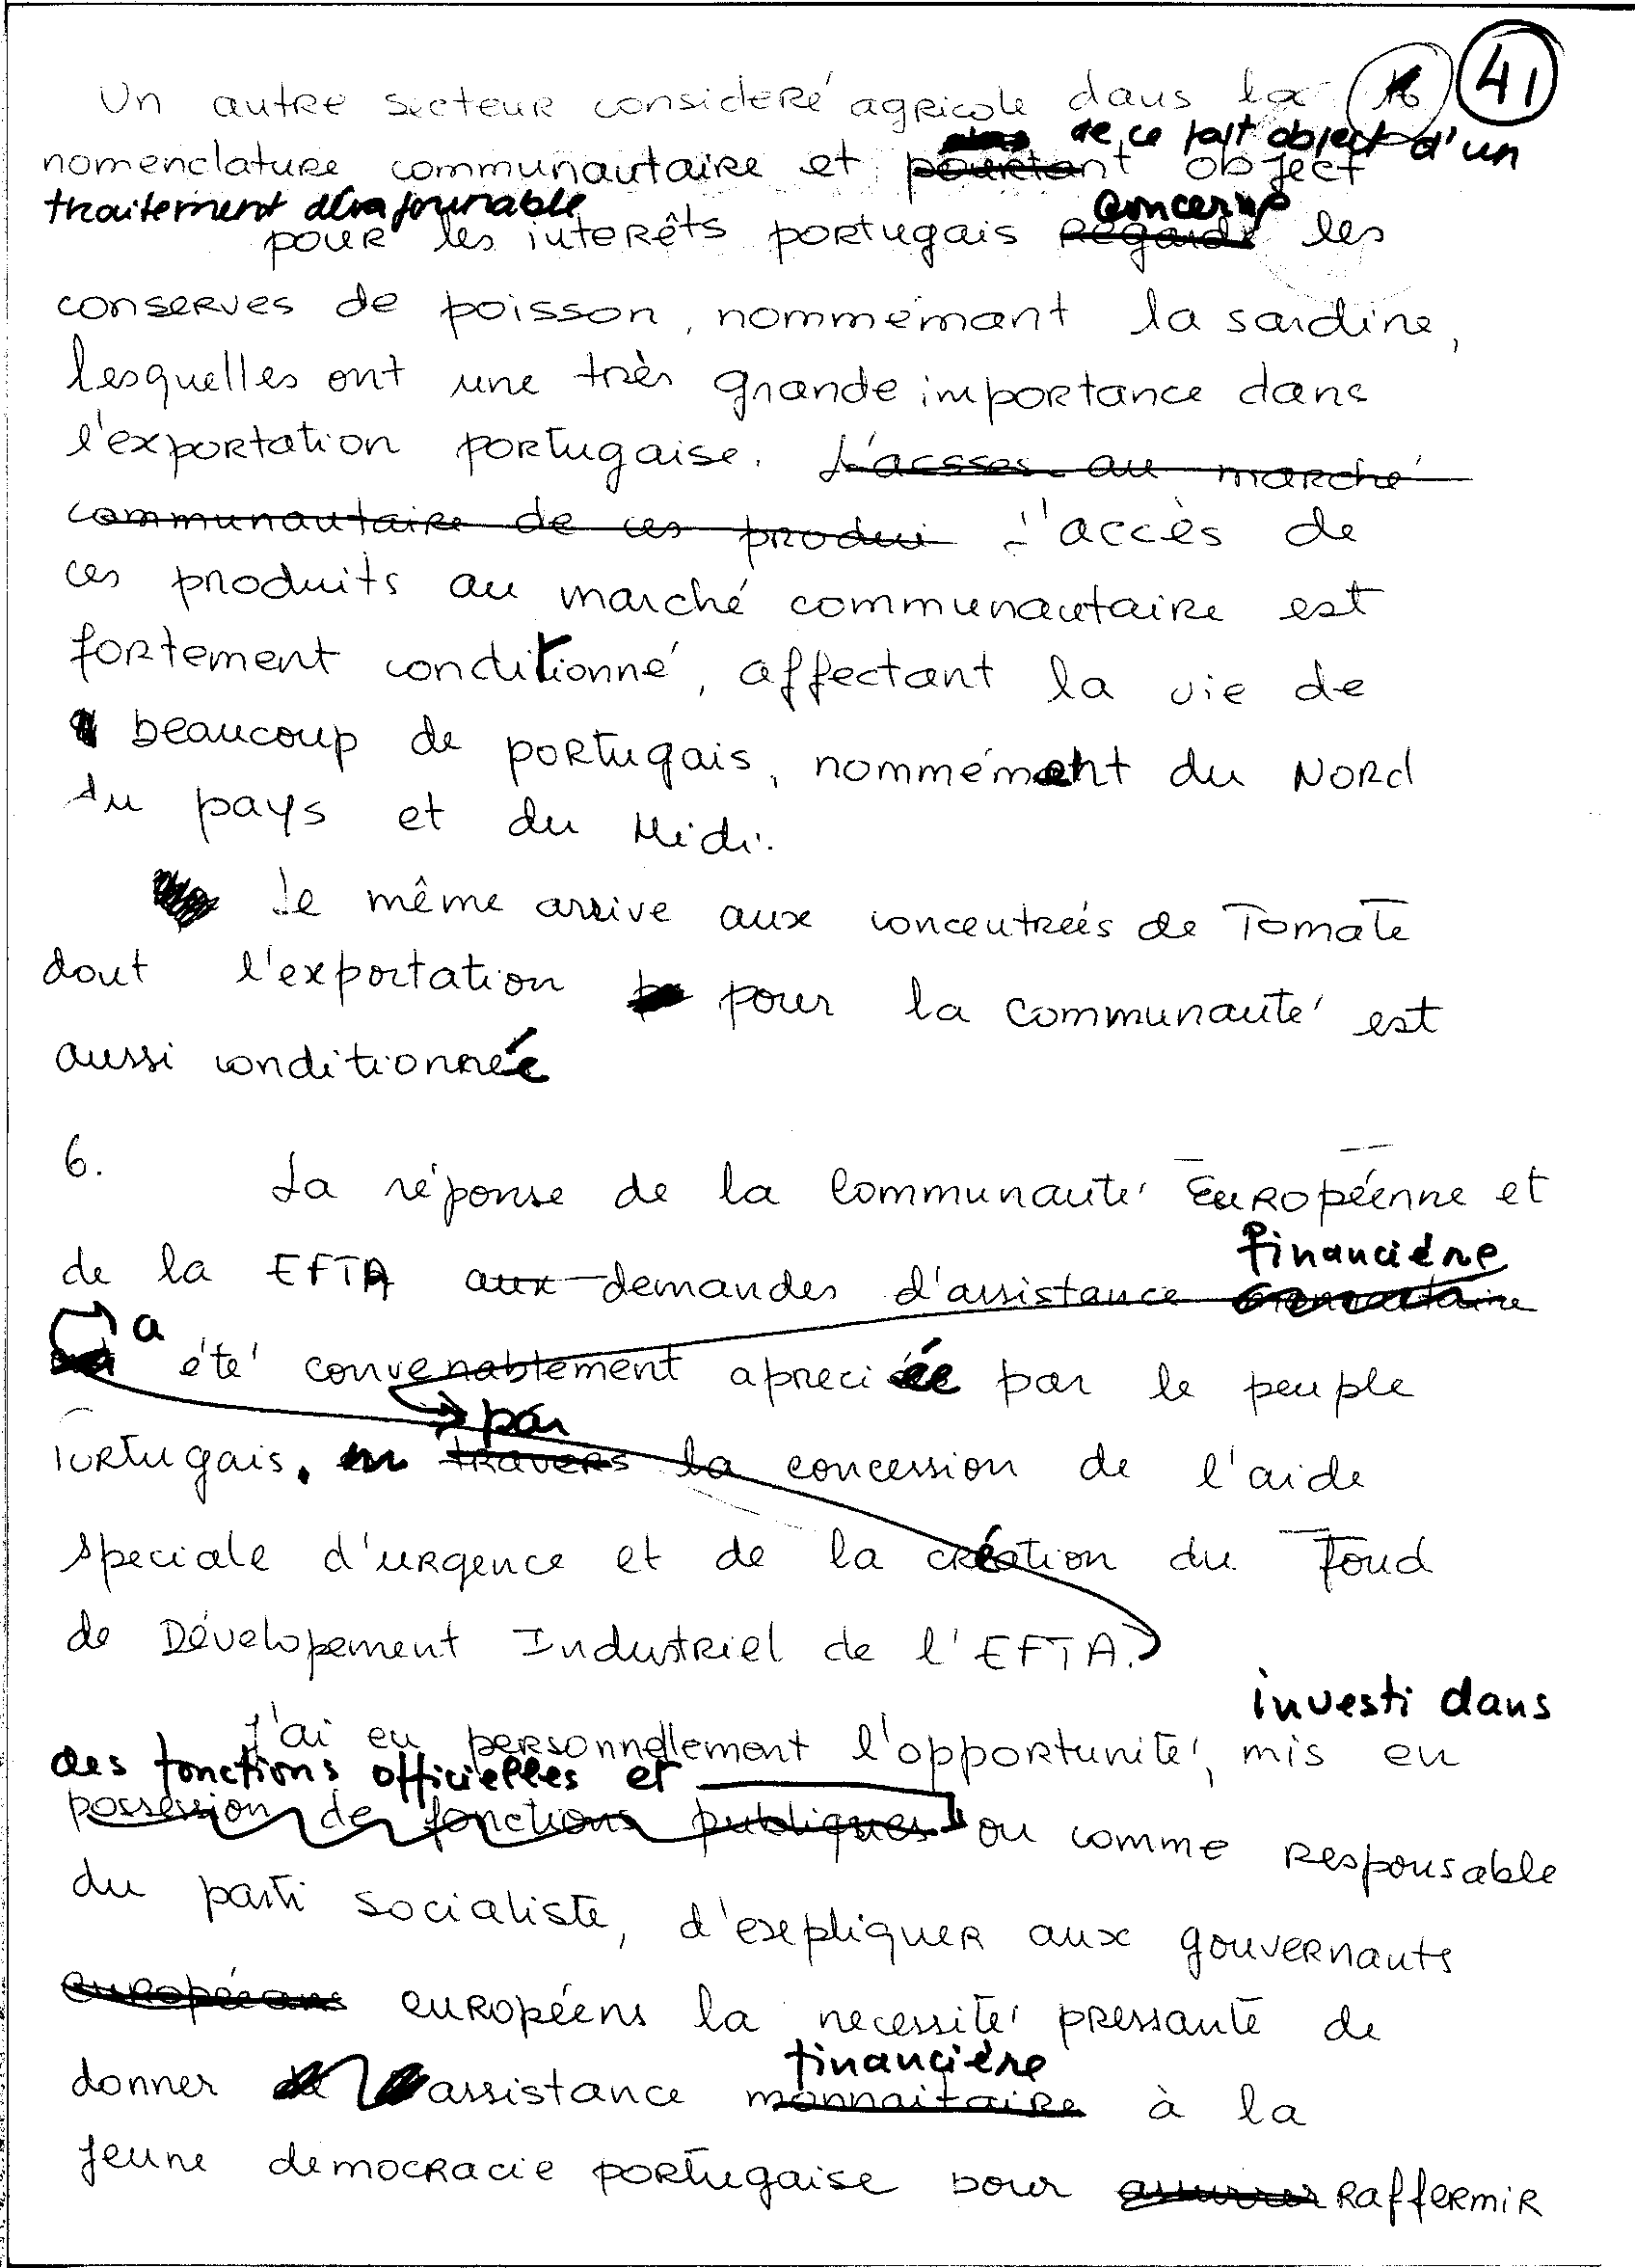 Un autre secteur consideré agricole dans la 41
de ce fait object d'un
nomenclature communautaire et pourtant object
traitement défavourable concerne
pour les interêts portugais regarde les
conserves de poisson, nommémant la sardine,
lesquelles ont une très grande importance dans
l'exportation portugaise. L'acsses au marché
communautaire de ces produi L'accès de
ces produits au marché communautaire est
fortement conditionné, affectant la vie de
beaucoup de portugais, nommément du Nord
du pays et du Midi.
Le même arrive aux concentreés de Tomate
dont l'exportation pour la Communauté est
aussi conditionnée
6.
La réponse de la Communauté Européenne et
financiére
de la EFTA aux demandes d'assistance
a
été convenablement apreciée par le peuple
par
Portugais. en travers la concession de l'aide
speciale d'urgence et de la création du Fond
de Dévelopement Industriel de l'EFTA.
investi dans
J'ai eu personnellement l'opportunité, mis en
des fonctions officielles et
possession de fonctions publiques ou comme responsable
du parti socialiste, d'expliquer aux gouvernants
européens la necessité pressante de
financiére
donner assistance monnaitaire à la
jeune democracie portugaise pour raffermir